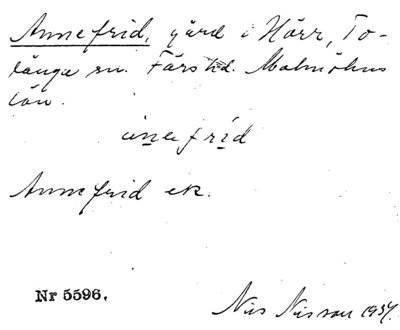 Annefrid, gård i Hörr, To-
långa sn. Färs hd. Malmöhus
län.
anefrid
Annefrid ek.
Nr 5596.
Nils Nilsson 1934.